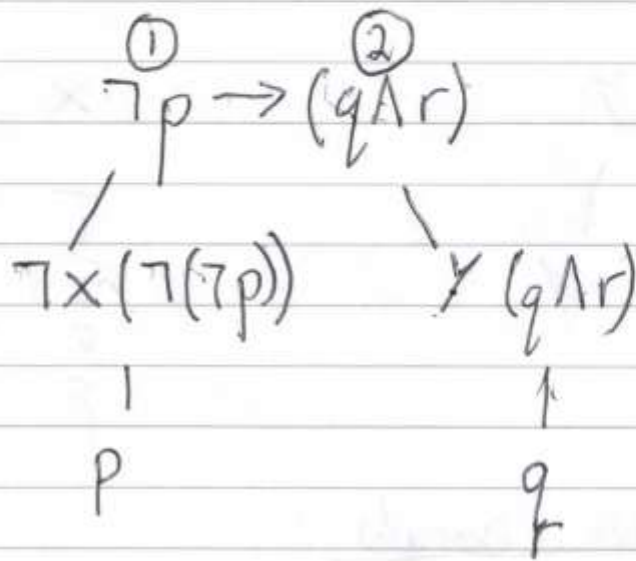 ① ②
¬p → (q∧r)
¬x(¬(¬p)) y(q∧r)
p q
r